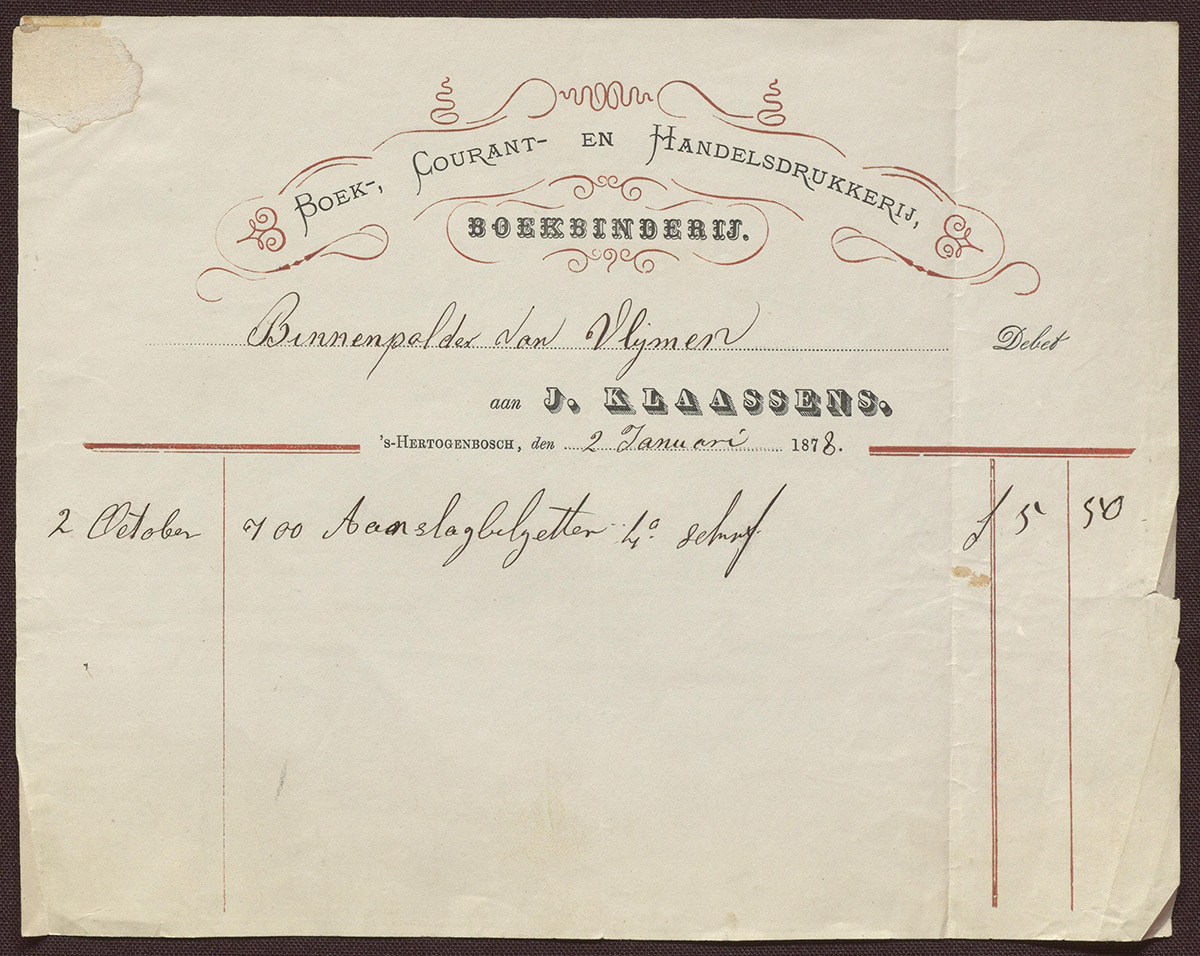 Boek-, Courant- en Handelsdrukkerij,
BOEKBINDERIJ.
Binnenpolder van Vlijmen Debet
aan J. KLAASSENS.
's-Hertogenbosch, den 2 Januari 1878.
2 October 700 Aanslagbiljetten 4o schrijf f 5 50